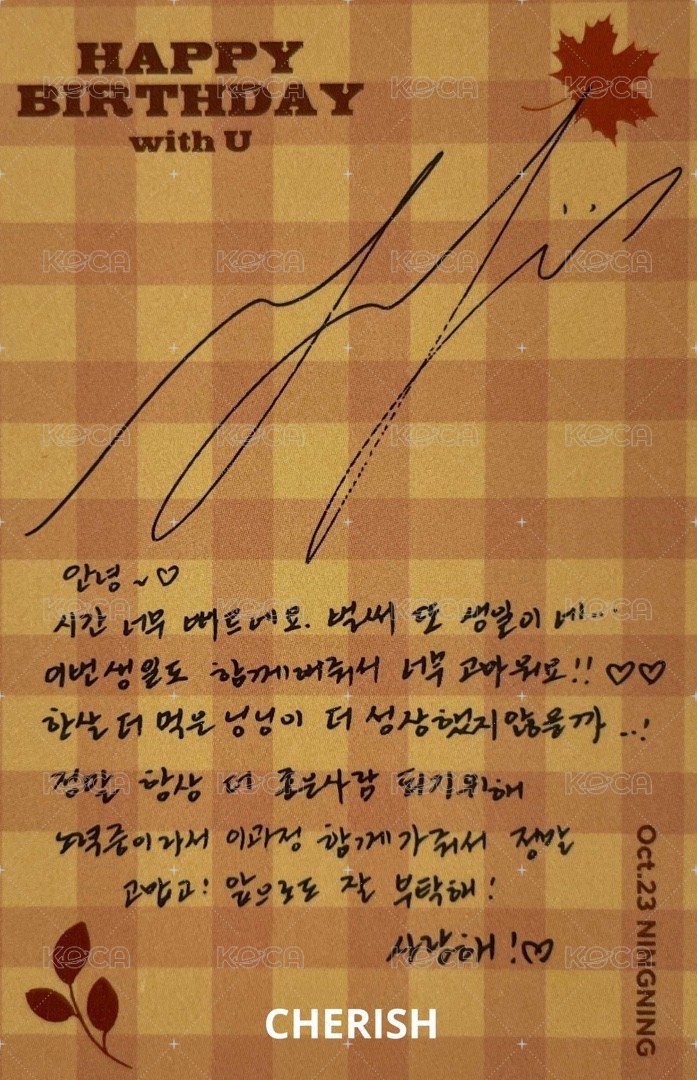 HAPPY
BIRTHDAY
with U
안녕~♡
시간 너무 빠르네요. 벌써 또 생일이네...
이번생일도 함께해줘서 너무 고마워요!! ♡♡
한살 더 먹은 닝닝이 더 성장했지않을까..!
정말 항상 더 좋은사람 되기위해
노력중이라서 이과정 함께가줘서 정말
고맙고! 앞으로도 잘 부탁해!
사랑해!♡
Oct.23 NINGNING
CHERISH
KOCA